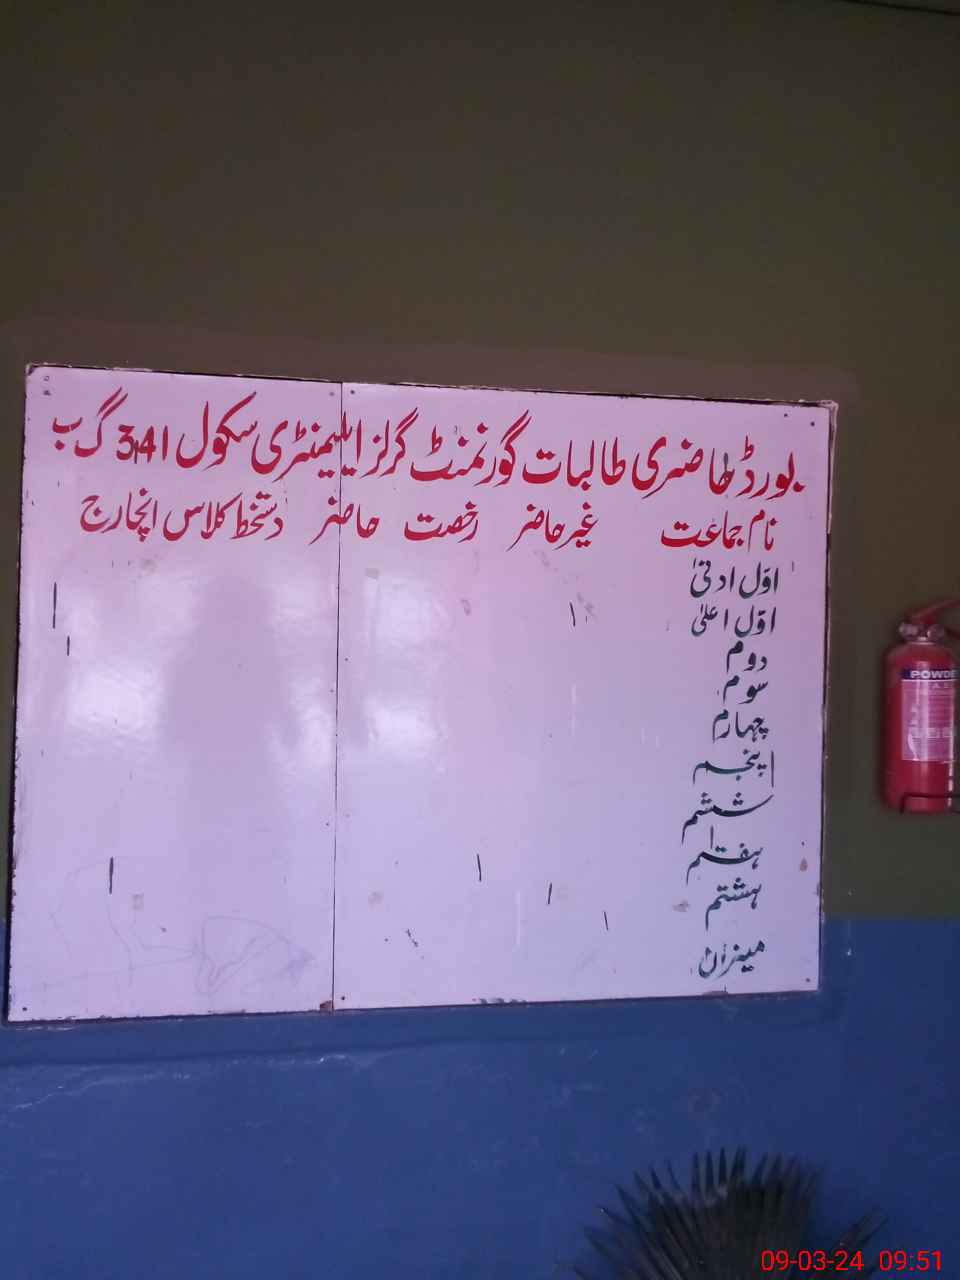 بورڈ حاضری طالبات گورنمنٹ گرلز ایلیمنٹری سکول 341 گ ب
نام جماعت غیر حاضر رخصت حاضر دستخط کلاس انچارج
اوّل ادنیٰ
اوّل اعلیٰ
دوم
سوم
چہارم
پنجم
ششم
ہفتم
ہشتم
میزان
POWDE
09-03-24 09:51